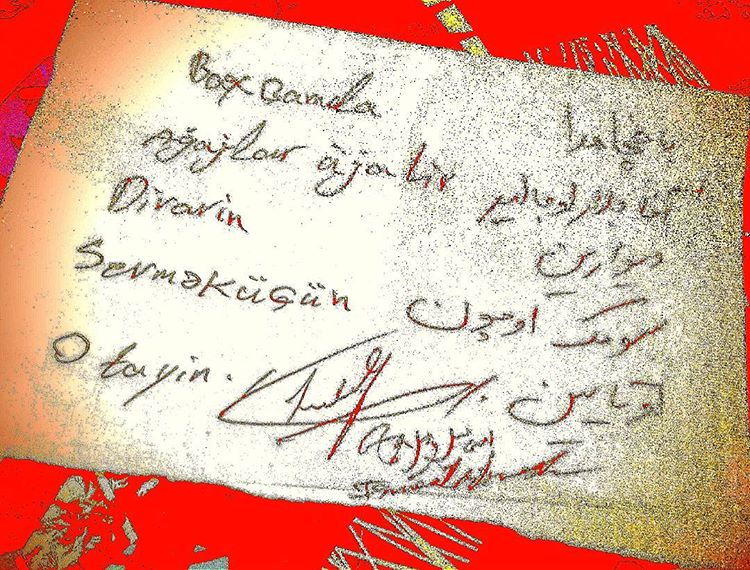 Baxçamda
Ağajlar üjalir
Divarin
Sevməküçün
O tayin.
باغچامدا
آغاجلار اوجالیر
دیوارین
سومک اوچون
اوتایین.